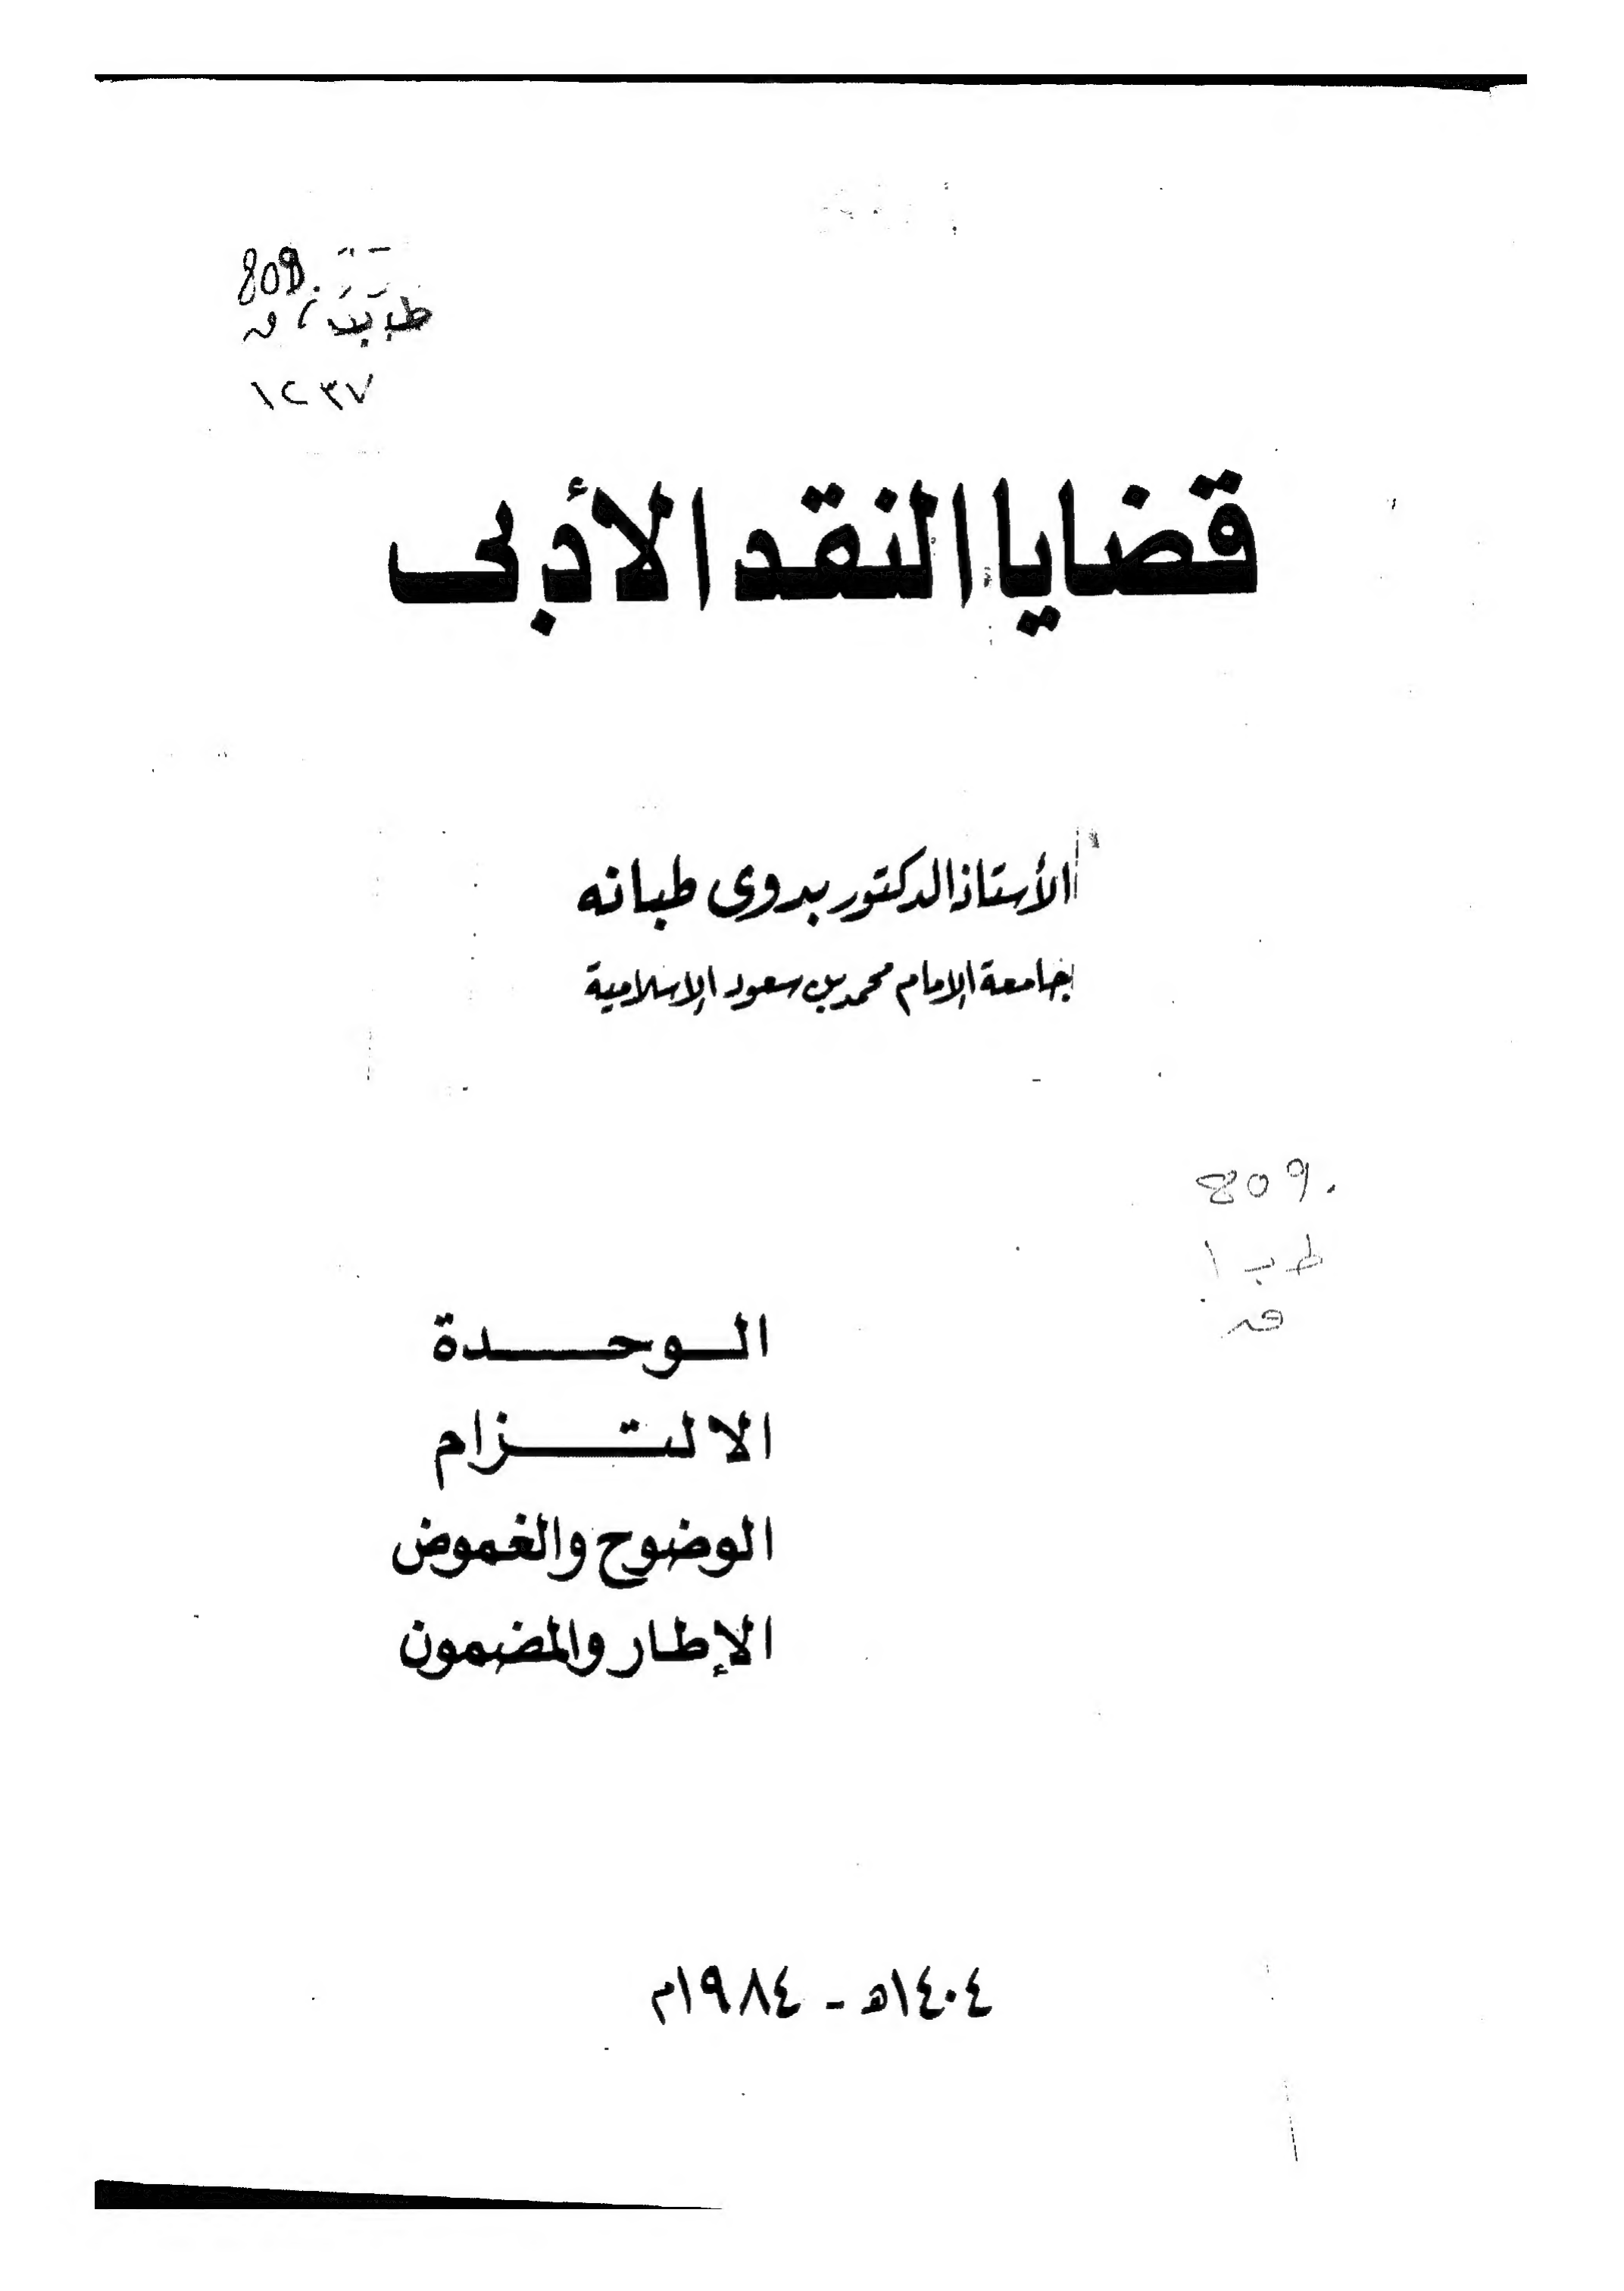 808.
١٢٣٧
قضايا النقد الأدبى
الأستاذ الدكتور بدوى طبانه
بجامعة الإمام محمد بن سعود الإسلامية
809.
ط ب ا
ق
الوحدة
الالتزام
الوضوح والغموض
الإطار والمضمون
١٤٠٤هـ - ١٩٨٤م